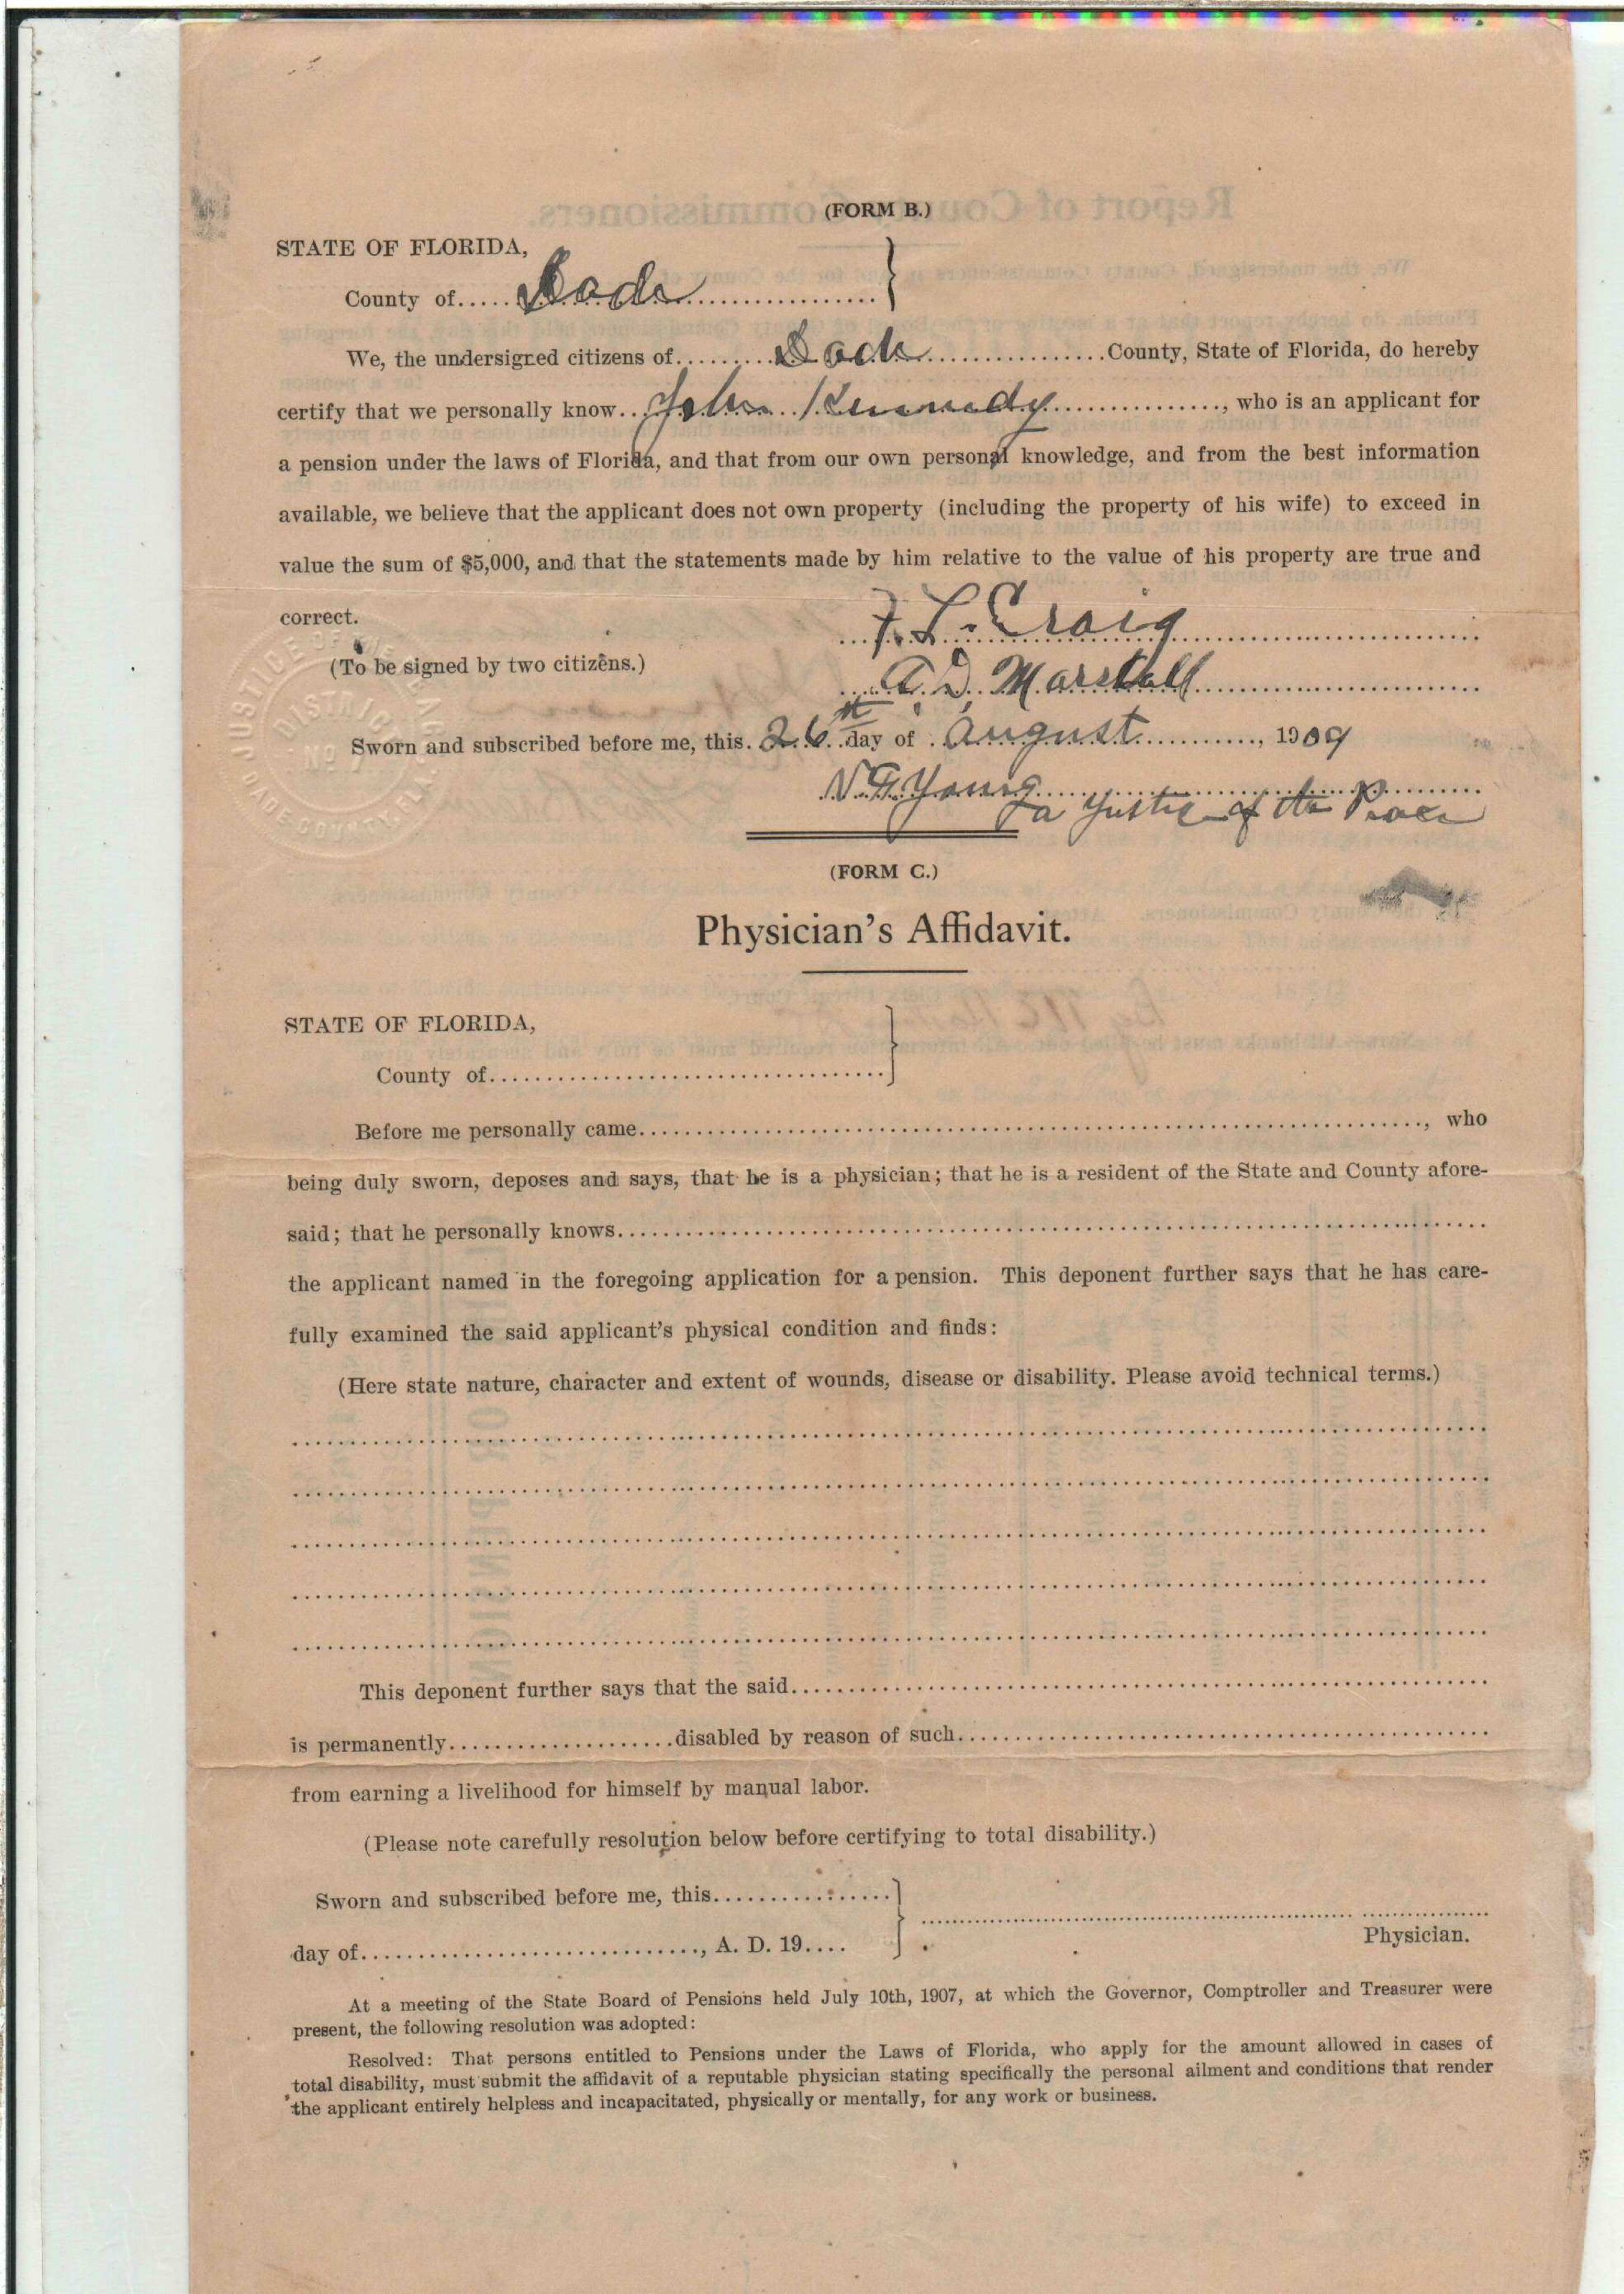 (FORM B.)
STATE OF FLORIDA,
County of..... Dade ..................
We, the undersigned citizens of......... Dade ..................County, State of Florida, do hereby
certify that we personally know.. John Kennedy ................, who is an applicant for
a pension under the laws of Florida, and that from our own personal knowledge, and from the best information
available, we believe that the applicant does not own property (including the property of his wife) to exceed in
value the sum of $5,000, and that the statements made by him relative to the value of his property are true and
correct.
F. L. Craig
(To be signed by two citizens.)
A. D. Marshall
Sworn and subscribed before me, this. 26th day of . August ..........., 1909
Young
a Justice of the Peace
JUSTICE OF THE PEACE
DISTRICT
No
DADE COUNTY, FLA.
(FORM C.)
Physician's Affidavit.
STATE OF FLORIDA,
County of....................................
Before me personally came......................................................................, who
being duly sworn, deposes and says, that he is a physician; that he is a resident of the State and County afore-
said; that he personally knows..............................................................................
the applicant named in the foregoing application for a pension. This deponent further says that he has care-
fully examined the said applicant's physical condition and finds:
(Here state nature, character and extent of wounds, disease or disability. Please avoid technical terms.)
This deponent further says that the said..............................................................
is permanently....................disabled by reason of such...............................................
from earning a livelihood for himself by manual labor.
(Please note carefully resolution below before certifying to total disability.)
Sworn and subscribed before me, this................
day of.............................., A. D. 19....
Physician.
At a meeting of the State Board of Pensions held July 10th, 1907, at which the Governor, Comptroller and Treasurer were
present, the following resolution was adopted:
Resolved: That persons entitled to Pensions under the Laws of Florida, who apply for the amount allowed in cases of
total disability, must submit the affidavit of a reputable physician stating specifically the personal ailment and conditions that render
the applicant entirely helpless and incapacitated, physically or mentally, for any work or business.